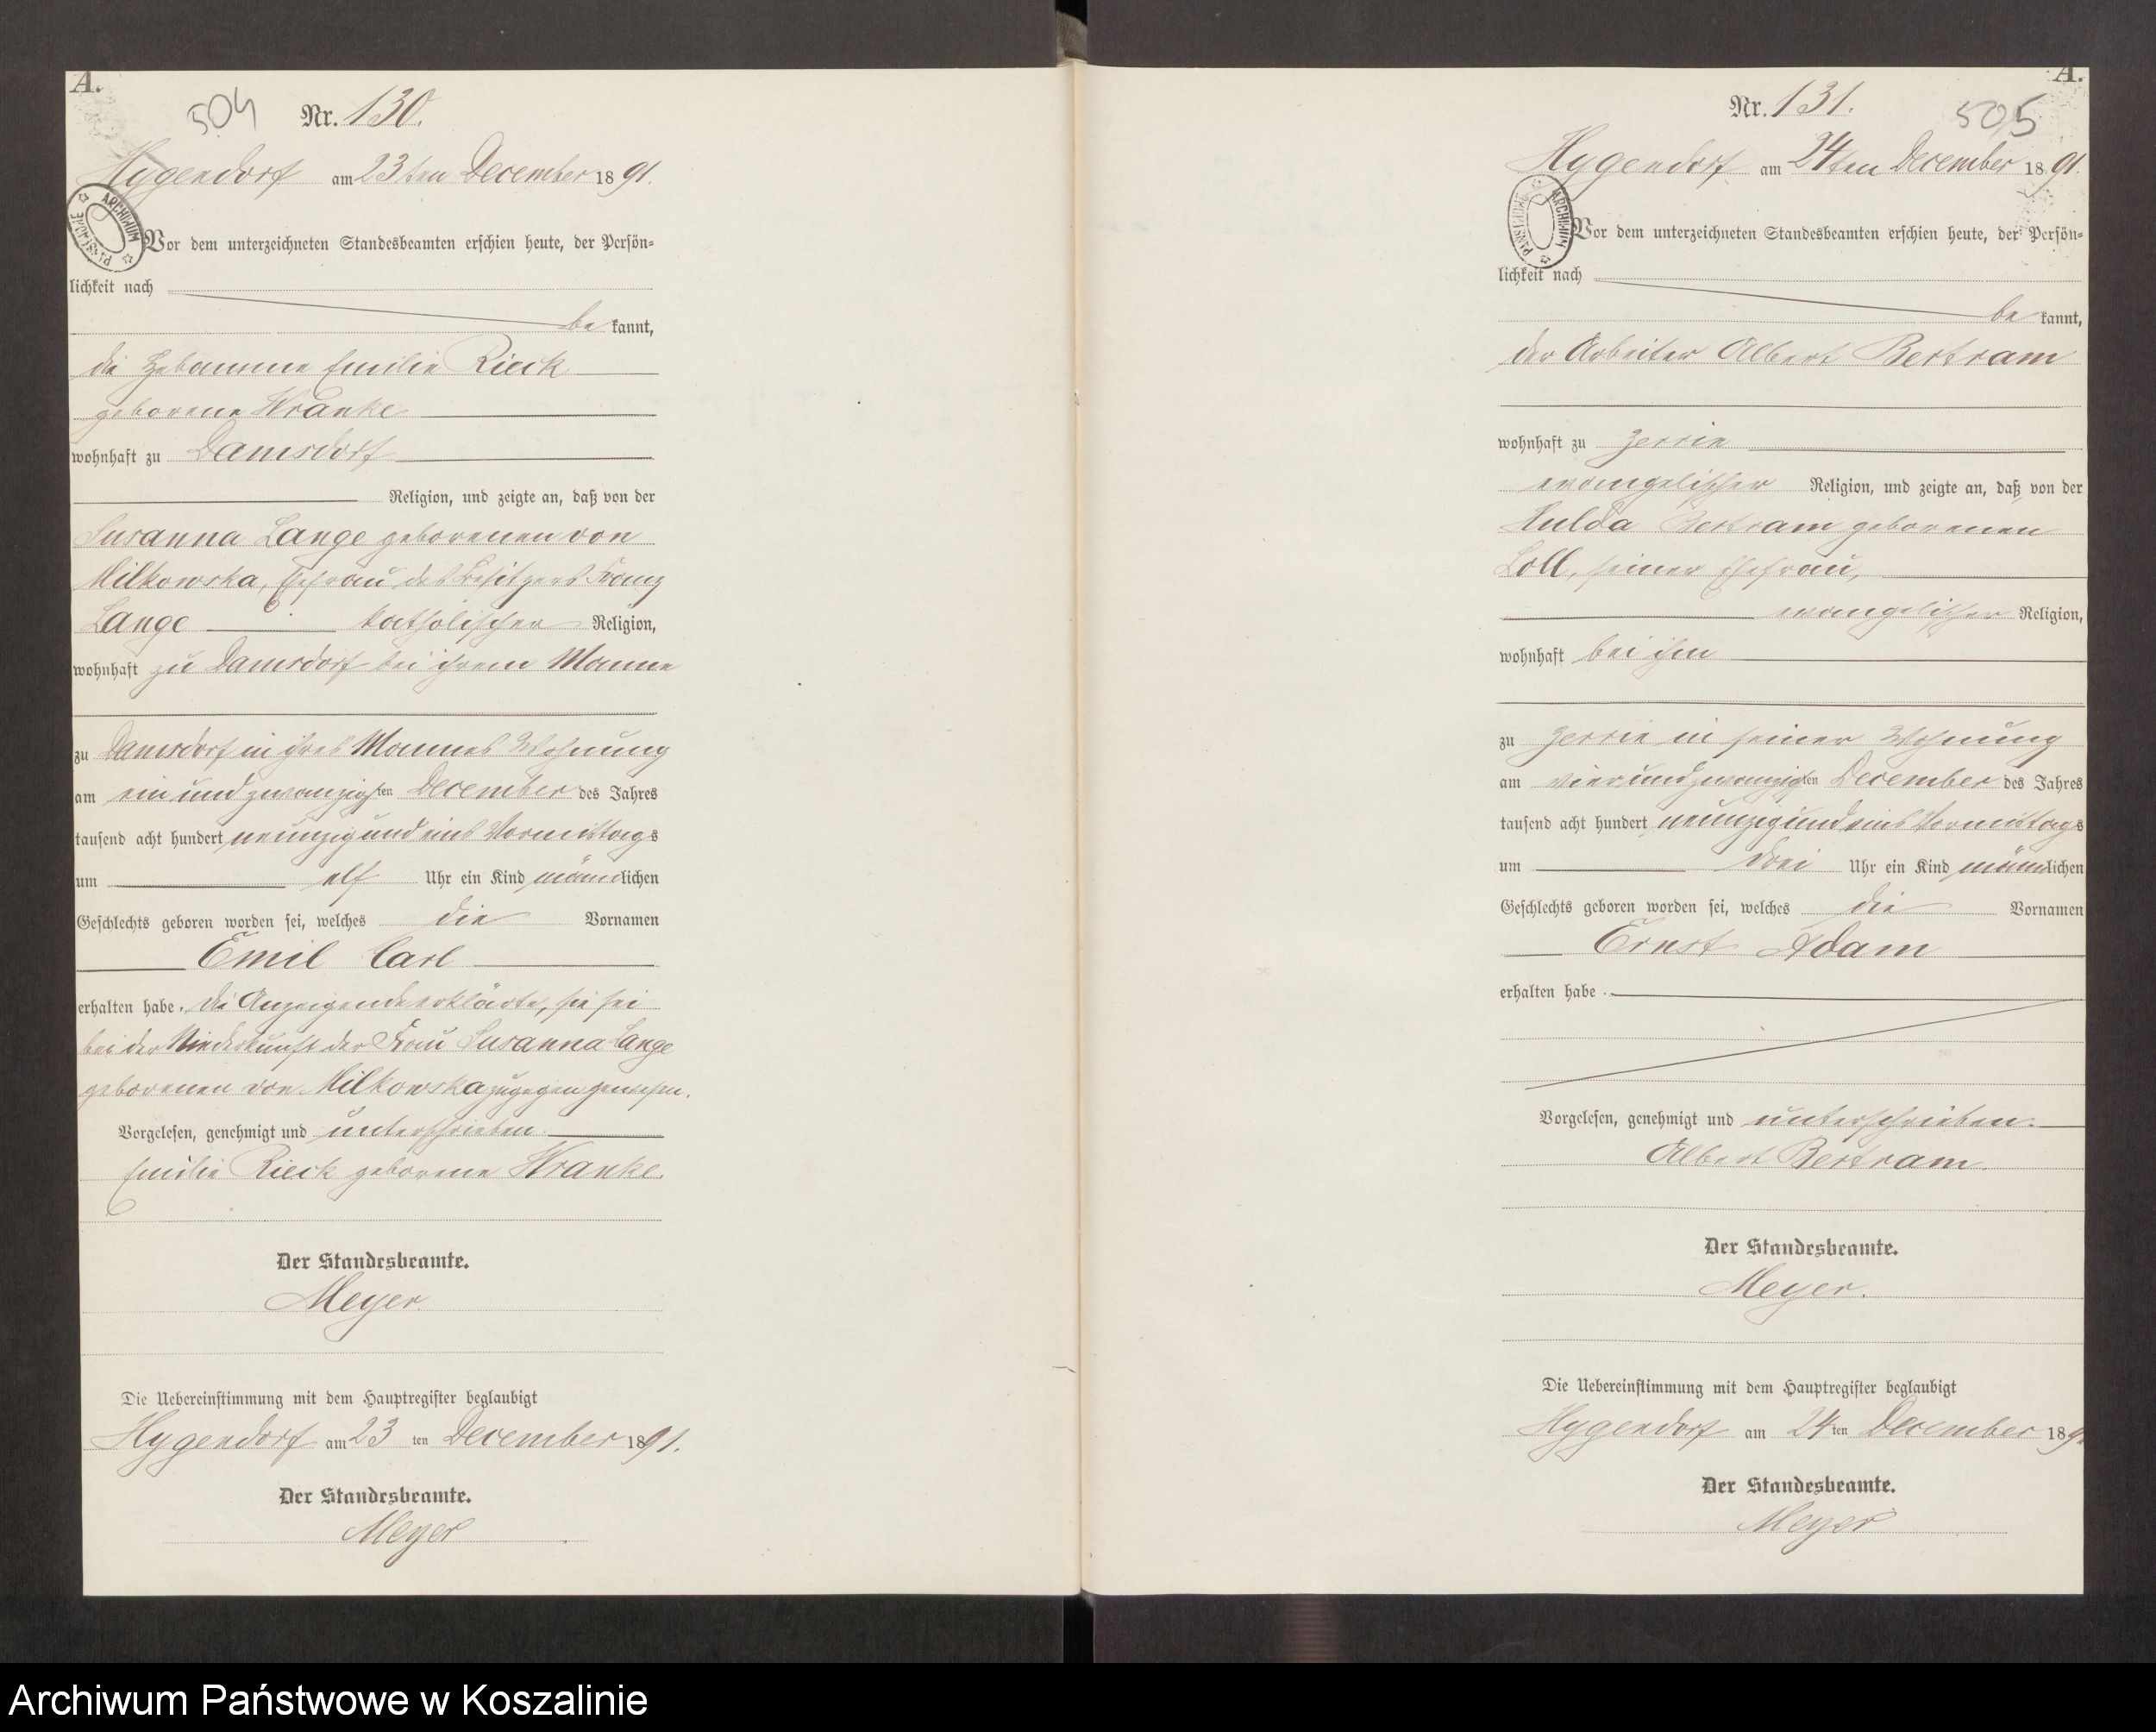 A.
504
Nr. 130.
Hygendorf am 23ten December 1891.
ARCHIWUM PAŃSTWOWE
Vor dem unterzeichneten Standesbeamten erschien heute, der Persön=
lichkeit nach
be kannt,
die Hebamme Emilie Rieck
geborene Wranke
wohnhaft zu Damsdorf
Religion, und zeigte an, daß von der
Susanna Lange geborenen von
Milkowska, Ehefrau des Besitzers Franz
Lange katholischer Religion,
wohnhaft zu Damsdorf bei ihrem Manne
zu Damsdorf in ihres Mannes Wohnung
am ein und zwanzigsten December des Jahres
tausend acht hundert neunzig und eins Vormittags
um elf Uhr ein Kind männlichen
Geschlechts geboren worden sei, welches die Vornamen
Emil Carl
erhalten habe. Die Anzeigende erklärte, sie sei
bei der Niederkunft der Frau Susanna Lange
geborenen von Milkowska zugegen gewesen.
Vorgelesen, genehmigt und unterschrieben.
Emilie Rieck geborene Wranke.
Der Standesbeamte.
Meyer
Die Uebereinstimmung mit dem Hauptregister beglaubigt
Hygendorf am 23 ten December 1891.
Der Standesbeamte.
Meyer
A.
Nr. 131.
505
Hygendorf am 24ten December 1891.
ARCHIWUM PAŃSTWOWE
Vor dem unterzeichneten Standesbeamten erschien heute, der Persön=
lichkeit nach
be kannt,
der Arbeiter Albert Bertram
wohnhaft zu Zerrin
evangelischer Religion, und zeigte an, daß von der
Hulda Bertram geborenen
Loll, seiner Ehefrau,
evangelischer Religion,
wohnhaft bei ihm
zu Zerrin in seiner Wohnung
am vierundzwanzigsten December des Jahres
tausend acht hundert neunzig und eins Vormittags
um drei Uhr ein Kind männlichen
Geschlechts geboren worden sei, welches die Vornamen
Ernst Adam
erhalten habe.
Vorgelesen, genehmigt und unterschrieben.
Albert Bertram.
Der Standesbeamte.
Meyer.
Die Uebereinstimmung mit dem Hauptregister beglaubigt
Hygendorf am 24 ten December 189
Der Standesbeamte.
Meyer
Archiwum Państwowe w Koszalinie